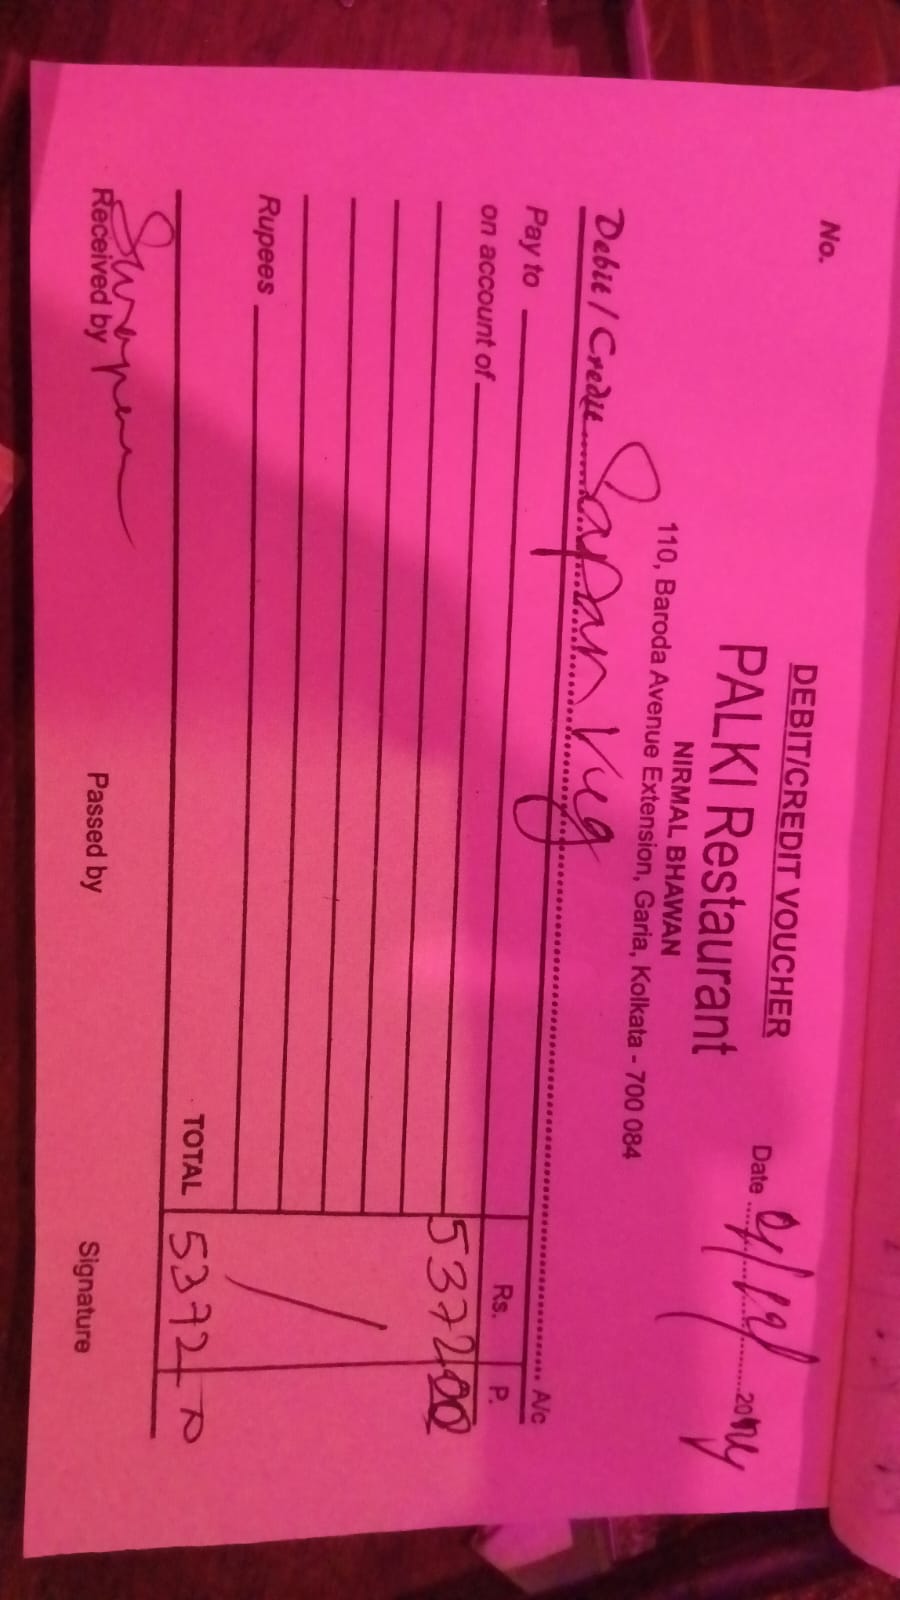 No.
DEBIT/CREDIT VOUCHER
PALKI Restaurant
NIRMAL BHAWAN
110, Baroda Avenue Extension, Garia, Kolkata - 700 084
Date 20
Debit / Credit Sapan Veg A/c
Pay to Rs. P.
on account of 5372 00
Rupees
TOTAL 5372
Swapan
Received by Passed by Signature